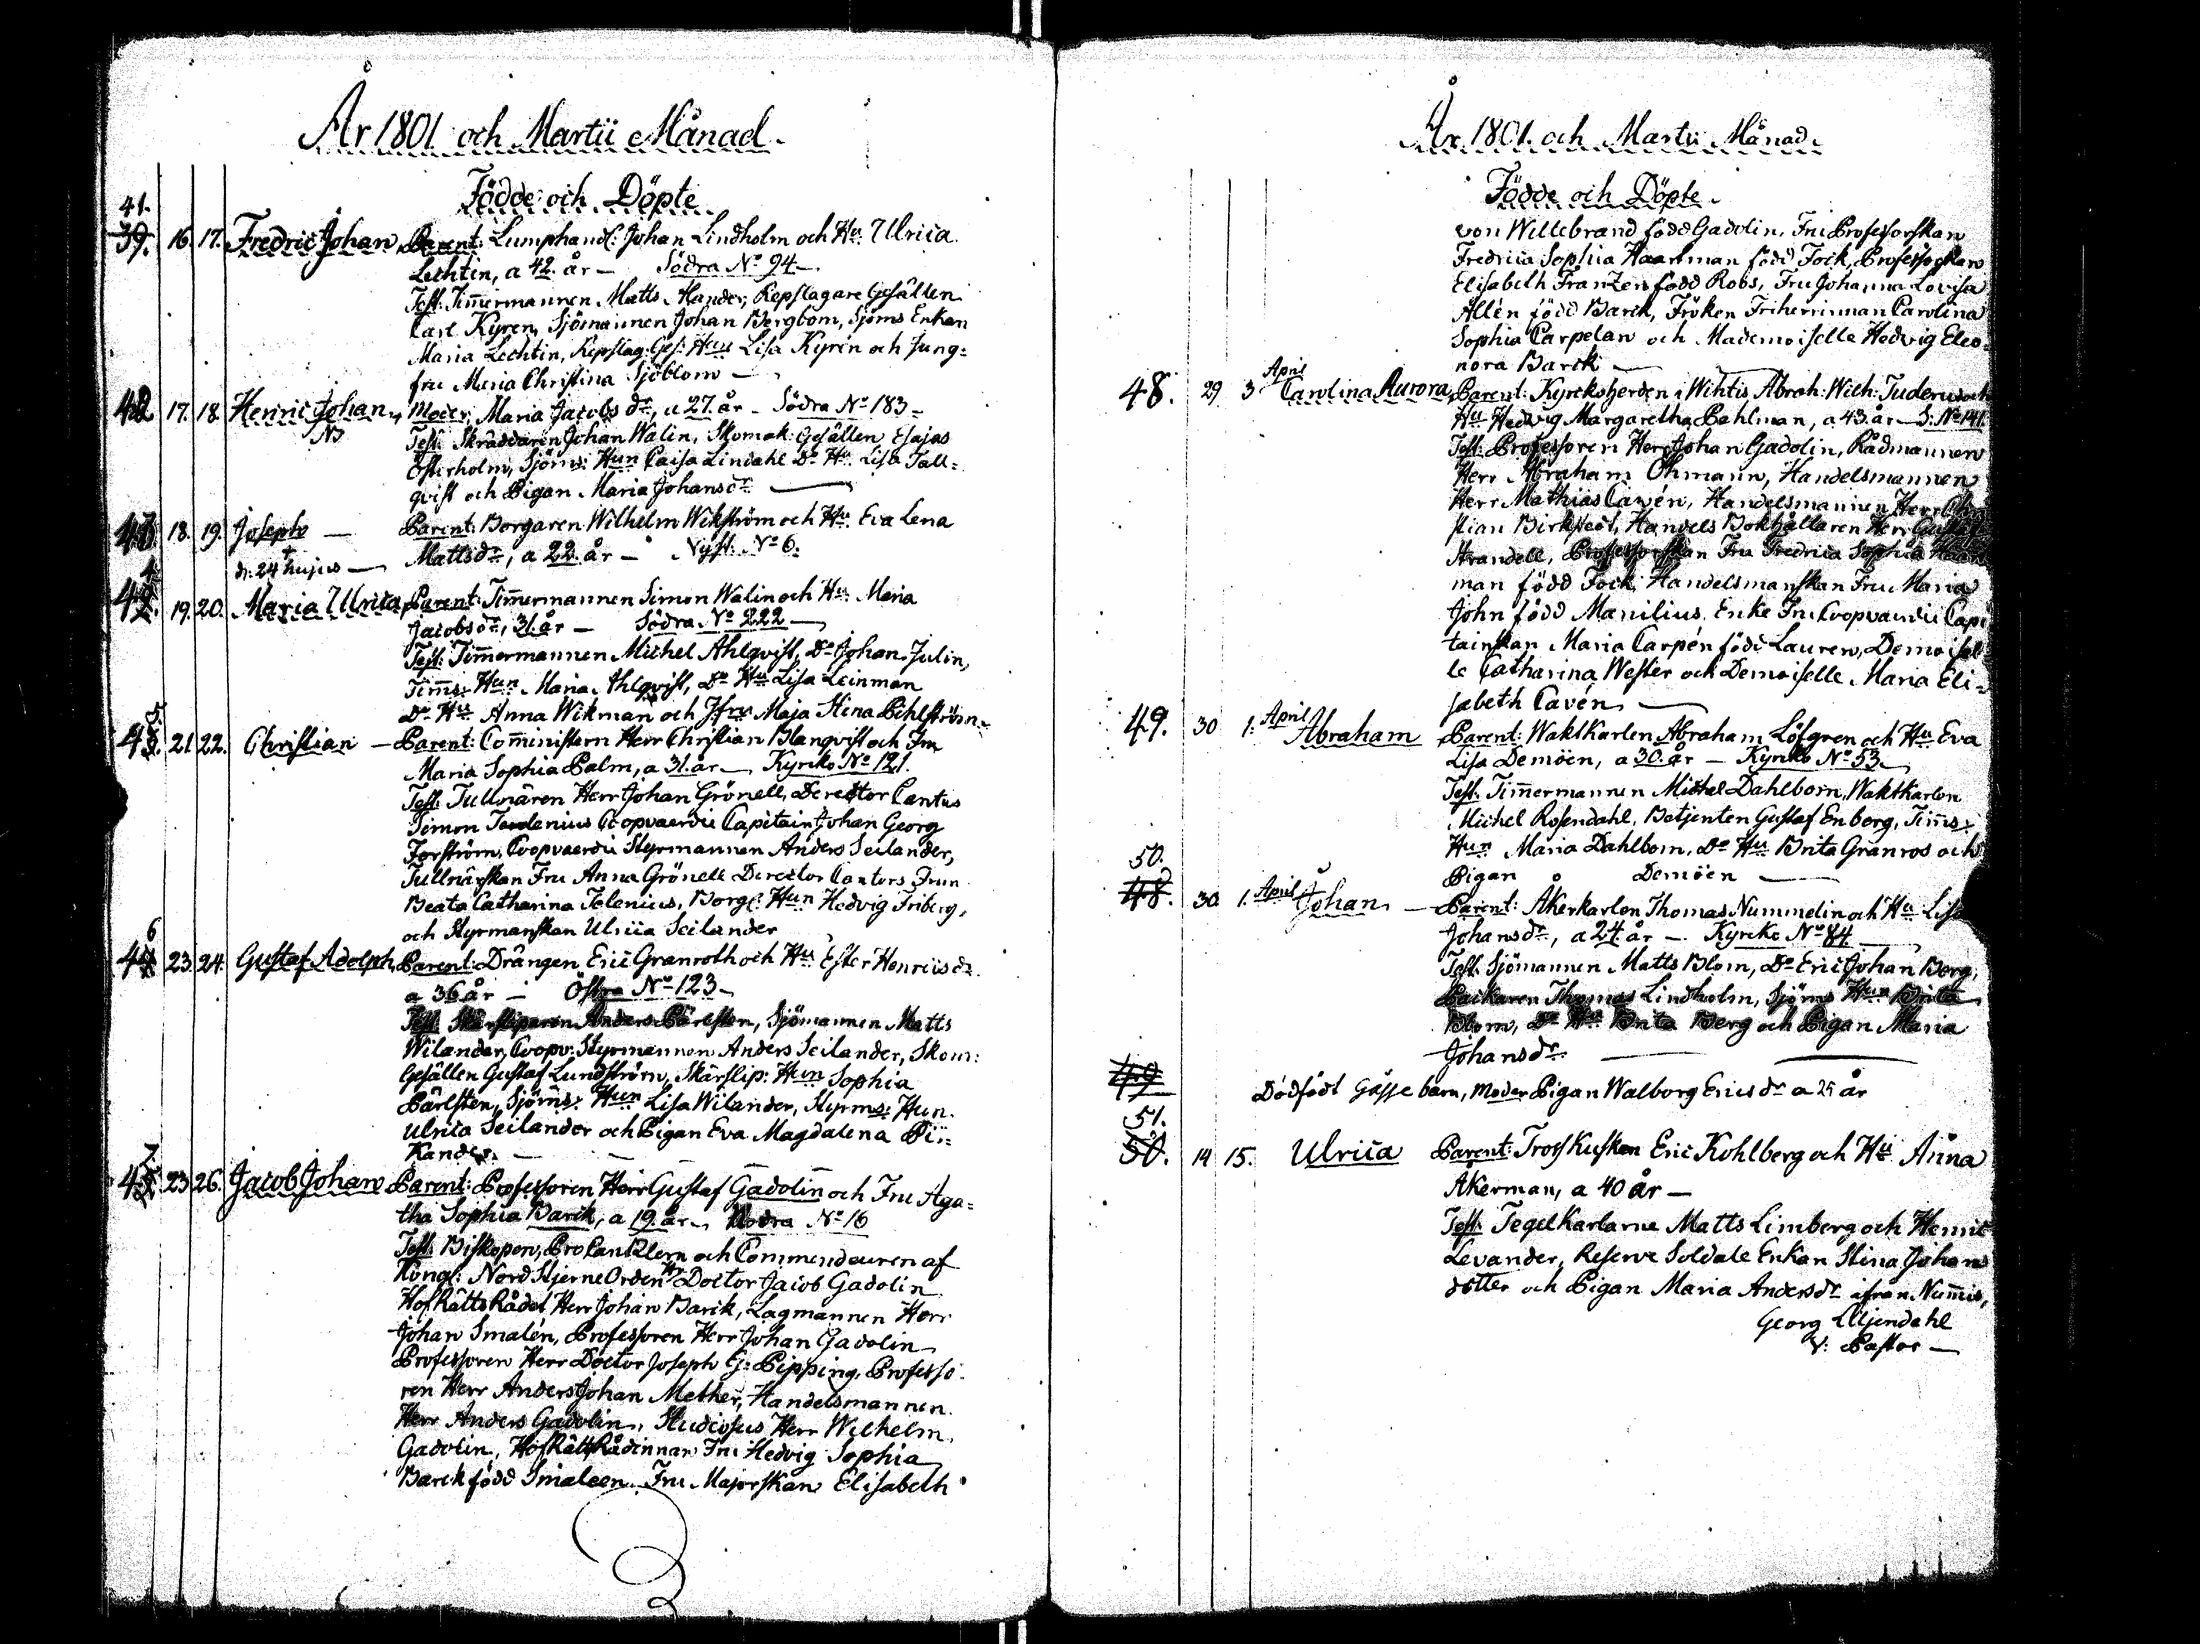 År 1801 och Martii Månad.
Födde och Döpte
41.
39. 16. 17. Fredric Johan Parent: Lumphandl: Johan Lindholm och Hu. Ulrica
Lechtin, a 42. år — Södra No 94 —
Test: Tim̄ermannen Matts Alander, Repslagare Gesällen
Carl Kyren, Sjömannen Johan Bergbom, Sjöms Enkan
Maria Lechtin, Repslag: Ges: Hun Lisa Kyrén och Jung=
fru Maria Christina Sjöblom —
42 17. 18. Henric Johan, Moder, Maria Jacobs dr, a 27. år — Södra No 183 =
NB Test: Skräddaren Johan Walin, Skomak: Gesällen Esajas
Österholm, Sjöms: Hun Caisa Lindahl Do Hu. Lisa Tall=
qvist och Pigan Maria Johansdr —
43 18. 19. Joseph — Parent: Borgaren Wilhelm Wikström och Hu. Eva Lena
d: 24 hujus — Mattsdr, a 22. år — Nyst: No 6.
4
42. 19. 20. Maria Ulrica, Parent: Tim̄ermannen Simon Walin och Hu. Maria
Jacobsdr, 31. år — Södra No 222 —
Test: Tim̄ermannen Michel Ahlqvist, Do Johan Julin,
Tim̄s: Hun Maria Ahlqvist, Do Hu Lisa Leinman
Do Hu Anna Wikman och Jfru Maja Stina Pihlström
5
43. 21. 22. Christian — Parent: Com̄inistern Herr Christian Blanqvist och Fru
Maria Sophia Palm, a 31. år — Kyrko No 121.
Test: Tullnären Herr Johan Grönell, Director Cantus
Simon Coopvaerdie Capitain Johan Georg
Forström, Coopvaerdie Styrmannen Anders Seilander,
Tullnärskan Fru Anna Grönell Director Cantors Frun
Beata Catharina Telenius, Borg: Hun Hedvig Friberg,
och Styrmanskan Ulrica Seilander
6
44 23. 24. Gustaf Adolph Parent: Drängen Eric Granroth och Hu Ester Henricsdr
a 36 år — Östra No 123 —
Test: Skärsliparen Anders Pärlsten, Sjömannen Matts
Wilander, Coopv: Styrmannen Anders Seilander, Skom:
Gesällen Gustaf Lundström, Skärslip: Hun Sophia
Pärlsten, Sjöms: Hun Lisa Wilander, Styrms: Hun.
Ulrica Seilander och Pigan Eva Magdalena Pi=
kander. —
7
45 23 26. Jacob Johan Parent: Professoren Herr Gustaf Gadolin och Fru Aga=
tha Sophia Barck, a 19. år — Norra No 16
Test: Biskopen, ProCanzlern och Commendeuren af
Kongl: NordStjerne Orden Hr Doctor Jacob Gadolin
HofRättsRådet Herr Johan Barck, Lagmannen Herr
Johan Smalén, Professoren Herr Johan Gadolin
Professoren Herr Doctor Joseph G: Pipping, Professo=
ren Herr Anders Johan Mether, Handelsmannen
Herr Anders Gadolin, Studiosus Herr Wilhelm
Gadolin, HofRättsRådinnan Fru Hedvig Sophia
Barck född Smaleen. Fru Majorskan Elisabeth
År 1801. och Martii Månad.
Födde och Döpte.
von Willebrand född Gadolin, Fru Professorskan
Fredrica Sophia Haartman född Fock, Professorskan
Elisabeth Franzen född Roos, Fru Johanna Lovisa
Allén född Barck, Fröken Friherrinnan Carolina
Sophia Carpelan och Mademoiselle Hedvig Eleo=
nora Barck —
48. 29 3 April Carolina Aurora, Parent: Kyrckoherden i Wihtis Abrah: Wilh: Tuderus och
Hu Hedvig Margaretha Pahlman, a 43. år — S: No 141
Test: Professoren Herr Johan Gadolin, Rådmannen
Herr Abraham Öhmann, Handelsmannen
Herr Mathias Cavén, Handelsmannen Herr Chri
stian Birkstedt, Handels Bokhållaren Herr Gustaf
Strandell, Professorskan Fru Fredrica Sophia Haart
man född Fock, Handelsmanskan Fru Maria
John född Manilius, Enke Fru Coopvaerdie Capi
tainskan Maria Carpén född Lauren, Demoisel
le Catharina Wester och Demoiselle Maria Eli=
sabeth Cavén —
49. 30 1. April Abraham Parent: Waktkarlen Abraham Löfgren och Hu Eva
Lisa Demöen, a 30. år — Kyrko No 53 —
Test: Tim̄ermannen Michel Dahlbom, Waktkarlen
Michel Rosendahl, Betjenten Gustaf Enberg, Tim̄s:
Hun Maria Dahlbom, Do Hu Brita Granros och
Pigan Demöen —
50.
48. 30. 1. April Johan — Parent: Åkerkarlen Thomas Nummelin och Hu Lisa
Johansdr, a 24. år — Kyrko No 84
Test: Sjömannen Matts Blom, Do Eric Johan Berg,
Packaren Thomas Lindholm, Sjöms Hun Brita
Blom, Do Hu Brita Berg och Pigan Maria
Johansdr —
49 Dödfödt Gåsse barn, Moder Pigan Walborg Ericsdr a 25 år
51.
50. 14 15. Ulrica Parent: TrossKusken Eric Kohlberg och Hu Anna
Åkerman, a 40 år —
Test: Tegelkarlarne Matts Limberg och Henric
Levander, Reserve Soldate Enkan Stina Johans
dotter och Pigan Maria Andersdr ifrån Num̄is,
Georg Liljendahl
V: Pastor —